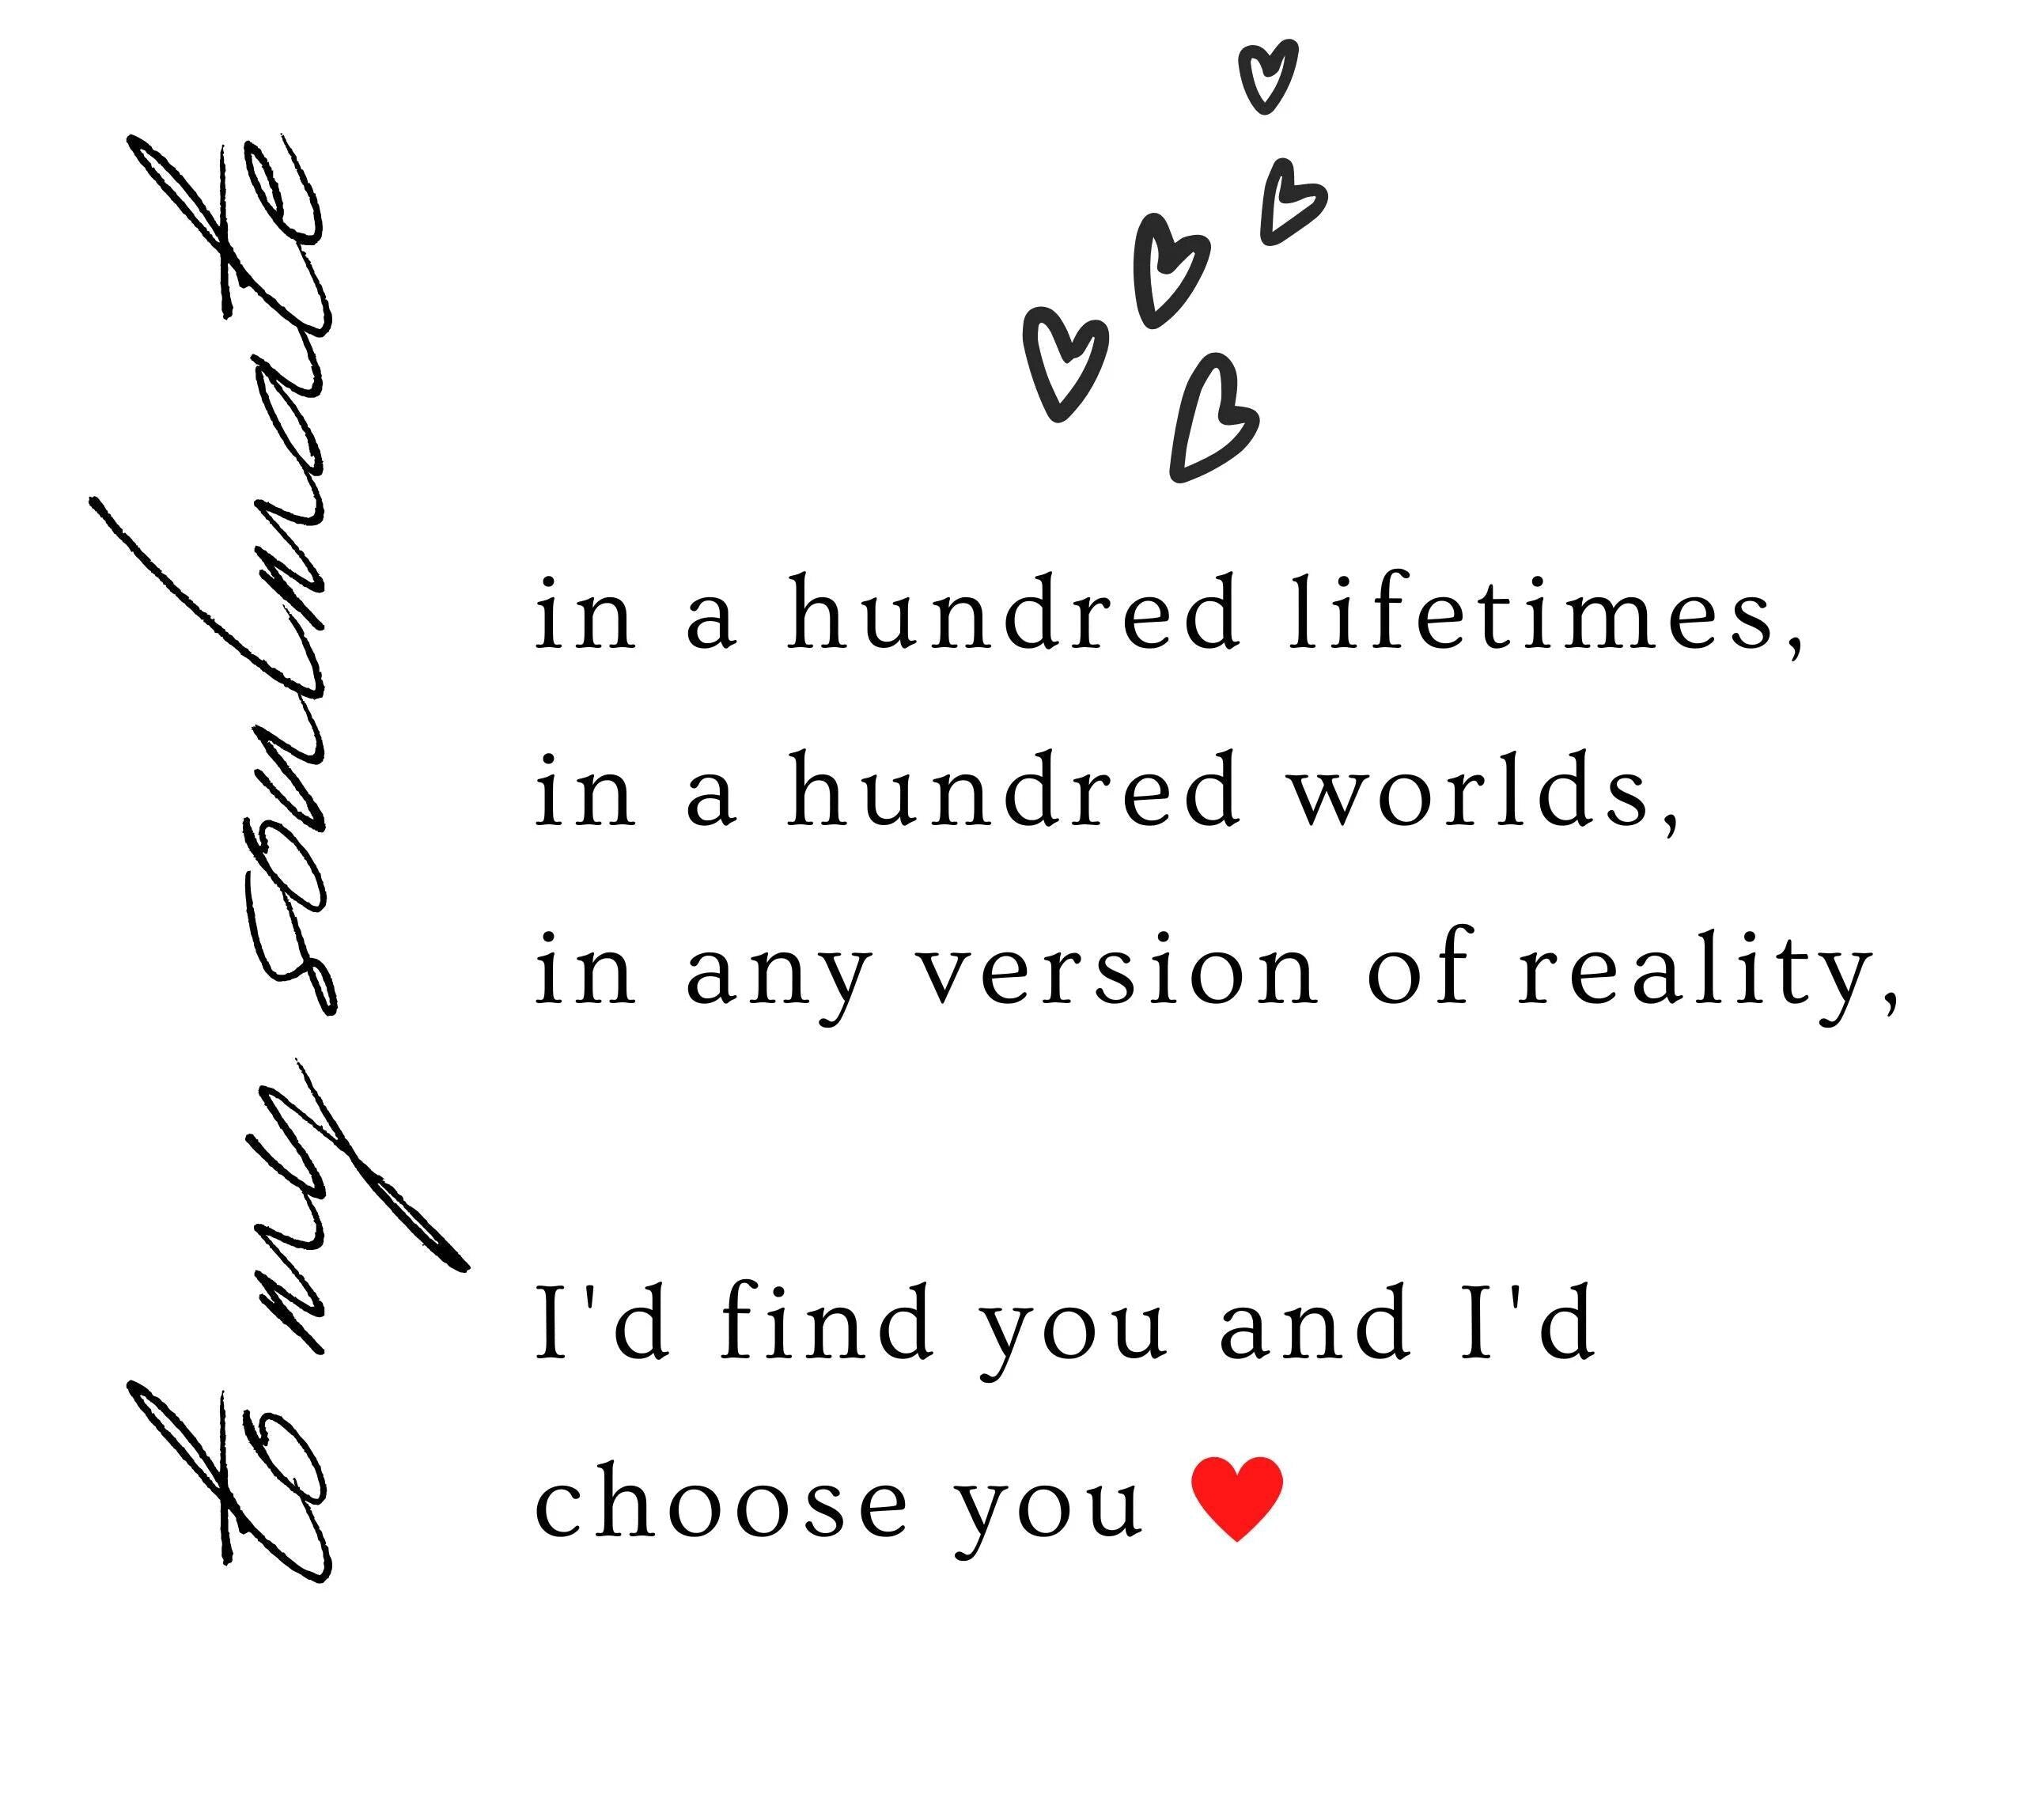 to my soulmate
in a hundred lifetimes,
in a hundred worlds,
in any version of reality,
I'd find you and I'd
choose you ❤